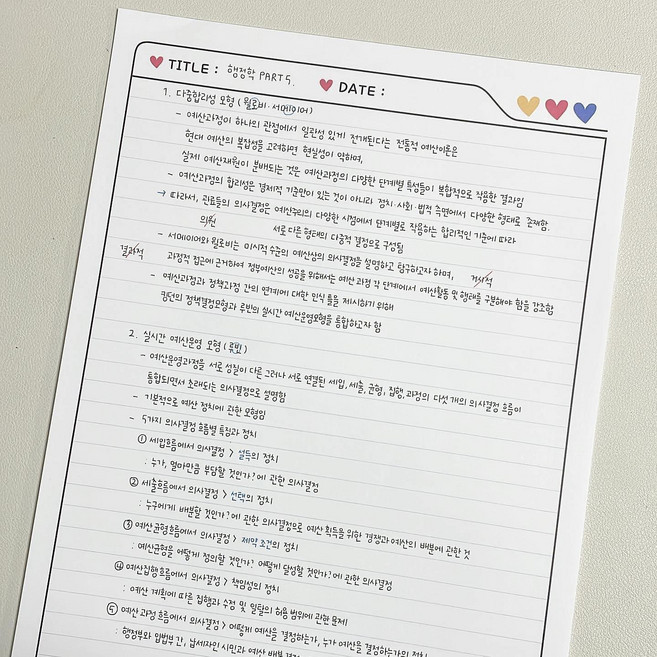 TITLE : 행정학 PART 5.
DATE :
1. 다중합리성 모형 (윌로비·서메이어)
- 예산과정이 하나의 관점에서 일관성 있게 전개된다는 전통적 예산이론은
현대 예산의 복잡성을 고려하면 현실성이 약하며,
실제 예산재원이 분배되는 것은 예산과정의 다양한 단계별 특성들이 복합적으로 작용한 결과임
- 예산과정의 합리성은 경제적 기준만이 있는 것이 아니라 정치·사회·법적 측면에서 다양한 형태로 존재함.
→ 따라서, 관료들의 의사결정은 예산주의의 다양한 시점에서 단계별로 작용하는 합리적인 기준에 따라
의원
서로 다른 형태의 다중적 결정으로 구성됨
- 서메이어와 윌로비는 미시적 수준의 예산상의 의사결정을 설명하고 탐구하고자 하며,
거시적
결과적
과정적 접근에 근거하여 정부예산의 성공을 위해서는 예산 과정 각 단계에서 예산활동 및 행태를 구분해야 함을 강조함
- 예산과정과 정책과정 간의 연계에 대한 인식 틀을 제시하기 위해
킹던의 정책결정모형과 루빈의 실시간 예산운영모형을 통합하고자 함
2. 실시간 예산운영 모형 (루빈)
- 예산운영과정을 서로 성질이 다른 그러나 서로 연결된 세입, 세출, 균형, 집행, 과정의 다섯 개의 의사결정 흐름이
통합되면서 초래되는 의사결정으로 설명함
- 기본적으로 예산 정치에 관한 모형임
- 5가지 의사결정 흐름별 특징과 정치
① 세입흐름에서 의사결정 > 설득의 정치
: 누가, 얼마만큼 부담할 것인가?에 관한 의사결정
② 세출흐름에서 의사결정 > 선택의 정치
: 누구에게 배분할 것인가?에 관한 의사결정으로 예산 획득을 위한 경쟁과 예산의 배분에 관한 것
③ 예산균형흐름에서 의사결정 > 제약 조건의 정치
: 예산균형을 어떻게 정의할 것인가? 어떻게 달성할 것인가?에 관한 의사결정
④ 예산집행흐름에서 의사결정 > 책임성의 정치
: 예산 계획에 따른 집행과 수정 및 일탈의 허용 범위에 관한 문제
⑤ 예산 과정 흐름에서 의사결정 > 어떻게 예산을 결정하는가, 누가 예산을 결정하는가의 정치
: 행정부와 입법부 간, 납세자인 시민과 예산 배분